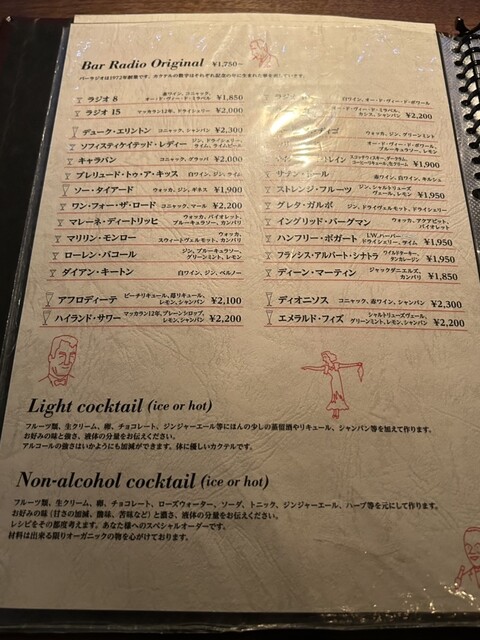 Bar Radio Original ¥1,750~
バーラジオは1972年創業です。カクテルの数字はそれぞれ記念の年に生まれた事を表しています。
ラジオ 8 赤ワイン、コニャック、オー・ド・ヴィー・ド・ミラベル ¥1,850
ラジオ 15 マッカラン12年、ドライシェリー ¥2,000
デューク・エリントン コニャック、シャンパン ¥2,300
ソフィスティケイテッド・レディー ジン、ドライシェリー、ライム、ライムピール
キャラバン コニャック、グラッパ ¥2,000
プレリュード・トゥ・ア・キッス 白ワイン、ジン、ライム
ソー・タイアード ウォッカ、ジン、ギネス ¥1,900
ワン・フォー・ザ・ロード コニャック、マール ¥2,200
マレーネ・ディートリッヒ ウォッカ、バイオレット、ブルーキュラソー、カンパリ
マリリン・モンロー ウォッカ、スウィートヴェルモット、カンパリ
ローレン・バコール ジン、ブルーキュラソー、グリーンミント、レモン
ダイアン・キートン 白ワイン、ジン、ペルノー
アフロディーテ ピーチリキュール、苺リキュール、レモン、シャンパン ¥2,100
ハイランド・サワー マッカラン12年、プレーンシロップ、レモン、シャンパン ¥2,200
白ワイン、オー・ド・ヴィー・ド・ポワール
オー・ド・ヴィー・ド・ミラベル、カシス、シャンパン ¥2,200
ウォッカ、ジン、グリーンミント
オー・ド・ヴィー・ド・ポワール、ブルーキュラソー、レモン
レイン スコッチウィスキー、ダークラム、コーヒーリキュール、生クリーム ¥1,900
サテン・ドール 赤ワイン、白ワイン、キルシュ
ストレンジ・フルーツ ジン、シャルトリューズヴェール、レモン ¥1,950
グレタ・ガルボ ジン、ドライヴェルモット、ドライシェリー
イングリッド・バーグマン ウォッカ、アクアビット、バイオレット
ハンフリー・ボガート I.W.ハーパー、ドライシェリー、ライム ¥1,950
フランシス・アルバート・シナトラ ワイルドターキー、タンカレージン ¥1,950
ディーン・マーティン ジャックダニエルズ、カンパリ ¥1,850
ディオニソス コニャック、赤ワイン、シャンパン ¥2,300
エメラルド・フィズ シャルトリューズヴェール、グリーンミント、レモン、シャンパン ¥2,200
Light cocktail (ice or hot)
フルーツ類、生クリーム、卵、チョコレート、ジンジャーエール等にほんの少しの蒸留酒やリキュール、シャンパン等を加えて作ります。
お好みの味と強さ、液体の分量をお伝えください。
アルコールの強さはいかようにも加減ができます。体に優しいカクテルです。
Non-alcohol cocktail (ice or hot)
フルーツ類、生クリーム、卵、チョコレート、ローズウォーター、ソーダ、トニック、ジンジャーエール、ハーブ等を元にして作ります。
お好みの味（甘さの加減、酸味、苦味など）と濃さ、液体の分量をお伝えください。
レシピをその都度考えます。あなた様へのスペシャルオーダーです。
材料は出来る限りオーガニックの物を心がけております。